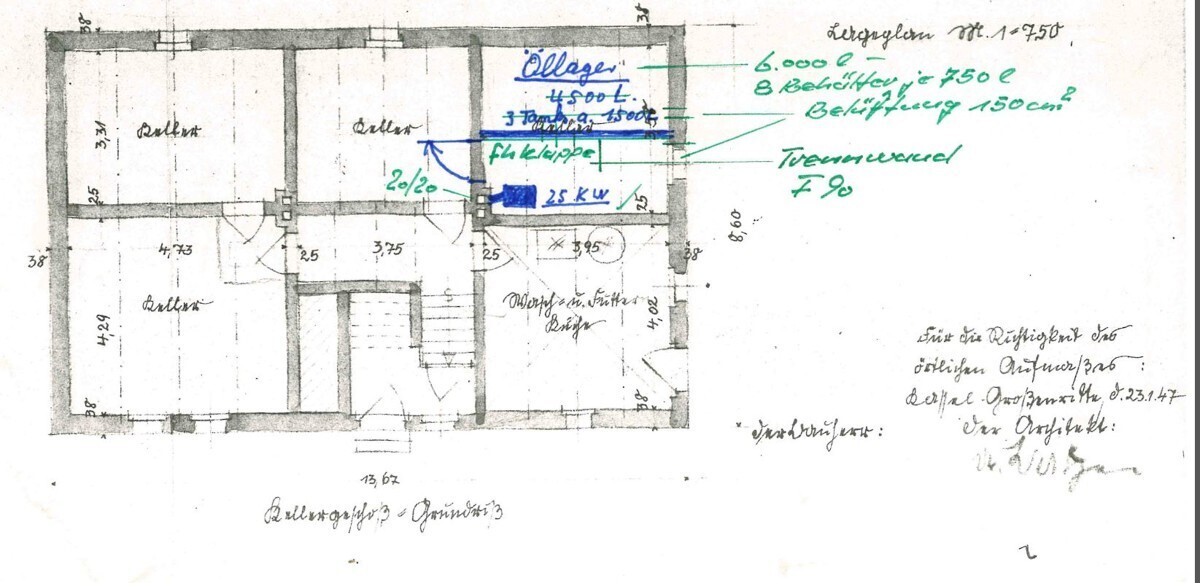 38
38
Lageplan M. 1=750.
Öllager
4500 L.
3 Tanks a. 1500 L
6.000 l -
8 Behälter je 750 l
Belüftung 150 cm²
Keller
Keller
Keller
3,31
20/20
25 KW
Trennwand
F 90
25
25
38
4,73
25
3,75
25
3,95
38
8,60
Keller
4,29
Wasch= u. Futter
Küche
4,02
38
38
Für die Richtigkeit des
örtlichen Aufmaßes:
Kassel-Großenritte, d. 23.1.47
Der Bauherr:
Der Architekt:
13,67
Kellergeschoß = Grundriß